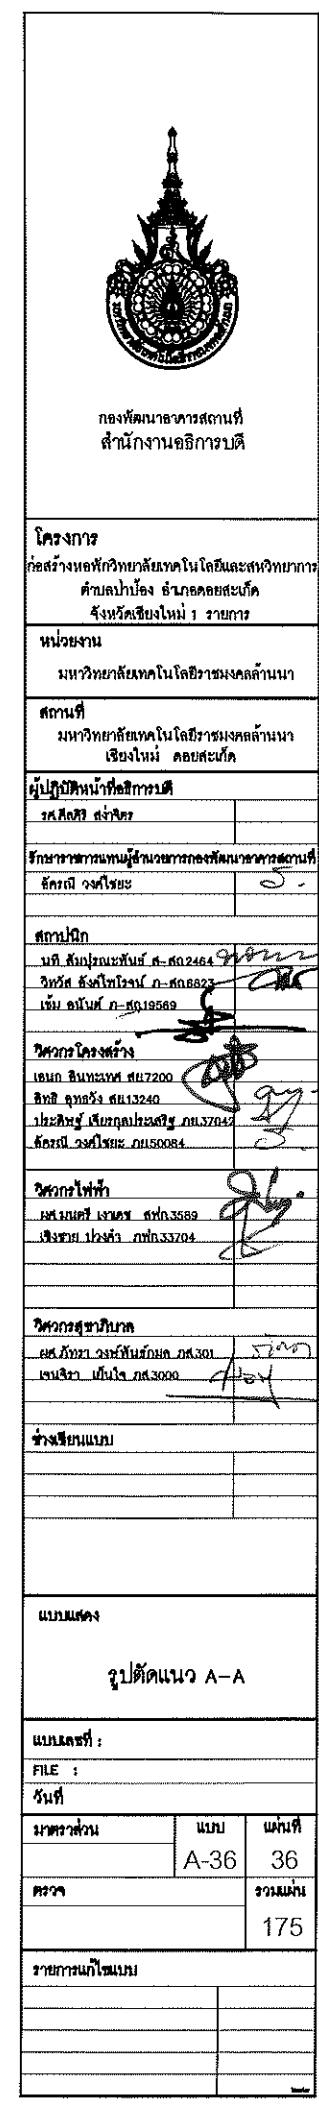 กองพัฒนาอาคารสถานที่
สำนักงานอธิการบดี
โครงการ
ก่อสร้างหอพักวิทยาลัยเทคโนโลยีและสหวิทยาการ
ตำบลป่าป้อง อำเภอดอยสะเก็ด
จังหวัดเชียงใหม่ 1 รายการ
หน่วยงาน
มหาวิทยาลัยเทคโนโลยีราชมงคลล้านนา
สถานที่
มหาวิทยาลัยเทคโนโลยีราชมงคลล้านนา
เชียงใหม่ ดอยสะเก็ด
ผู้ปฏิบัติหน้าที่อธิการบดี
รศ.ศีลศิริ สง่าจิตร
รักษาราชการแทนผู้อำนวยการกองพัฒนาอาคารสถานที่
อัครณี วงศ์ไชยะ
สถาปนิก
นที สัมปุรณะพันธ์ ส-สถ2464
วิทวัส อังค์ไพโรจน์ ภ-สถ6823
เข้ม อนันต์ ภ-สถ19569
วิศวกรโครงสร้าง
เอนก อินทะเทศ สย7200
อิทธิ อุทธวัง สย13240
ประดิษฐ์ เจียรกุลประเสริฐ ภย.37042
อัครณี วงศ์ไชยะ ภย50084
วิศวกรไฟฟ้า
ผศ.มนตรี เงาเดช สฟก3589
เชิงชาย ปวงคำ ภฟก.33704
วิศวกรสุขาภิบาล
ผศ.ภัทรา วงษ์พันธ์กมล ภส.301
เจนจิรา เป็นใจ ภส.3000
ช่างเขียนแบบ
แบบแสดง
รูปตัดแนว A-A
แบบเลขที่ :
FILE :
วันที่
มาตราส่วน แบบ แผ่นที่
A-36 36
ตรวจ รวมแผ่น
175
รายการแก้ไขแบบ